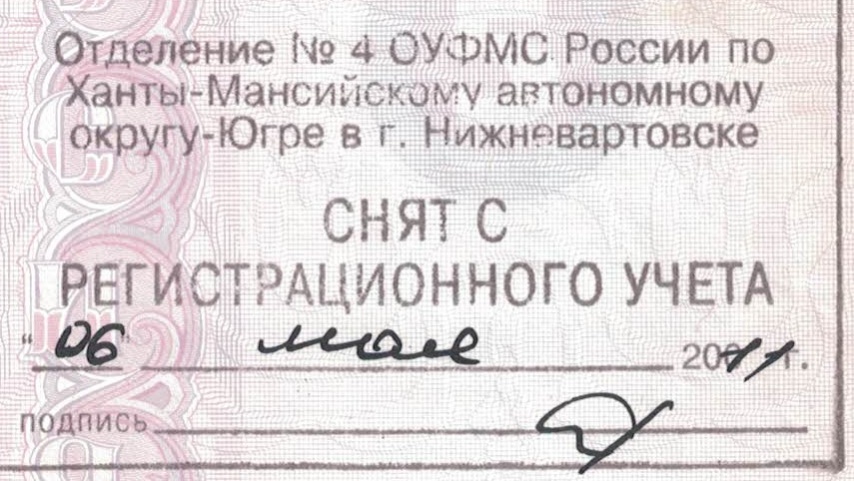 Отделение № 4 ОУФМС России по
Ханты-Мансийскому автономному
округу-Югре в г. Нижневартовске
СНЯТ С
РЕГИСТРАЦИОННОГО УЧЕТА
"06" мая 2011 г.
подпись